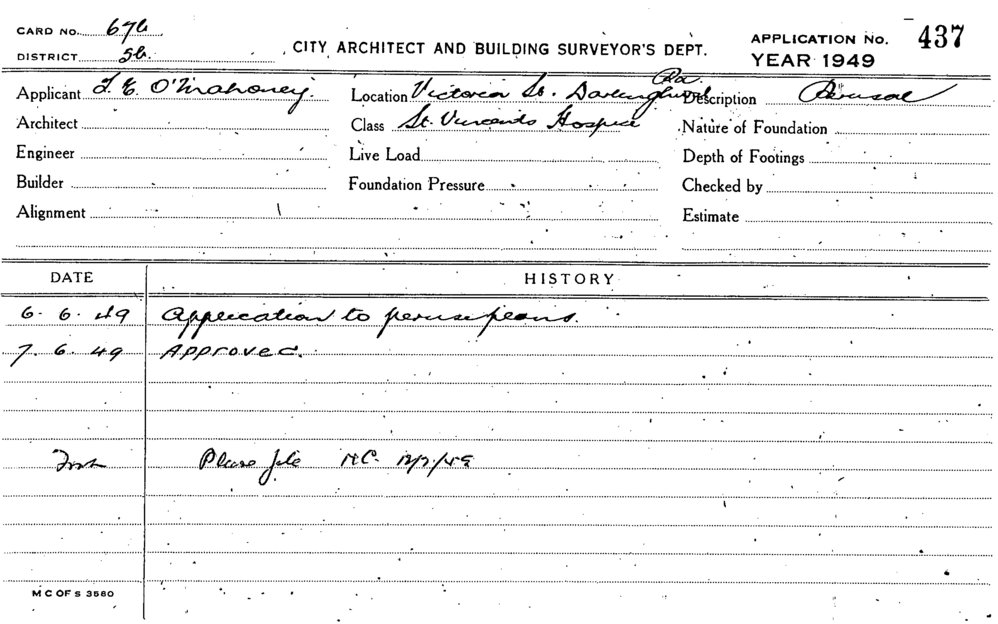 CARD No. 67b
DISTRICT 5b.
CITY ARCHITECT AND BUILDING SURVEYOR'S DEPT.
APPLICATION No. 437
YEAR 1949
Applicant T. E. O'Mahoney.
Location Victoria St. Darlinghurst
Description Perusal
Architect
Class St. Vincents Hospice
Nature of Foundation
Engineer
Live Load
Depth of Footings
Builder
Foundation Pressure
Checked by
Alignment
Estimate
DATE
HISTORY
6. 6. 49 Application to peruse plans.
7. 6. 49 Approved.
Please file
M C OF S 3580